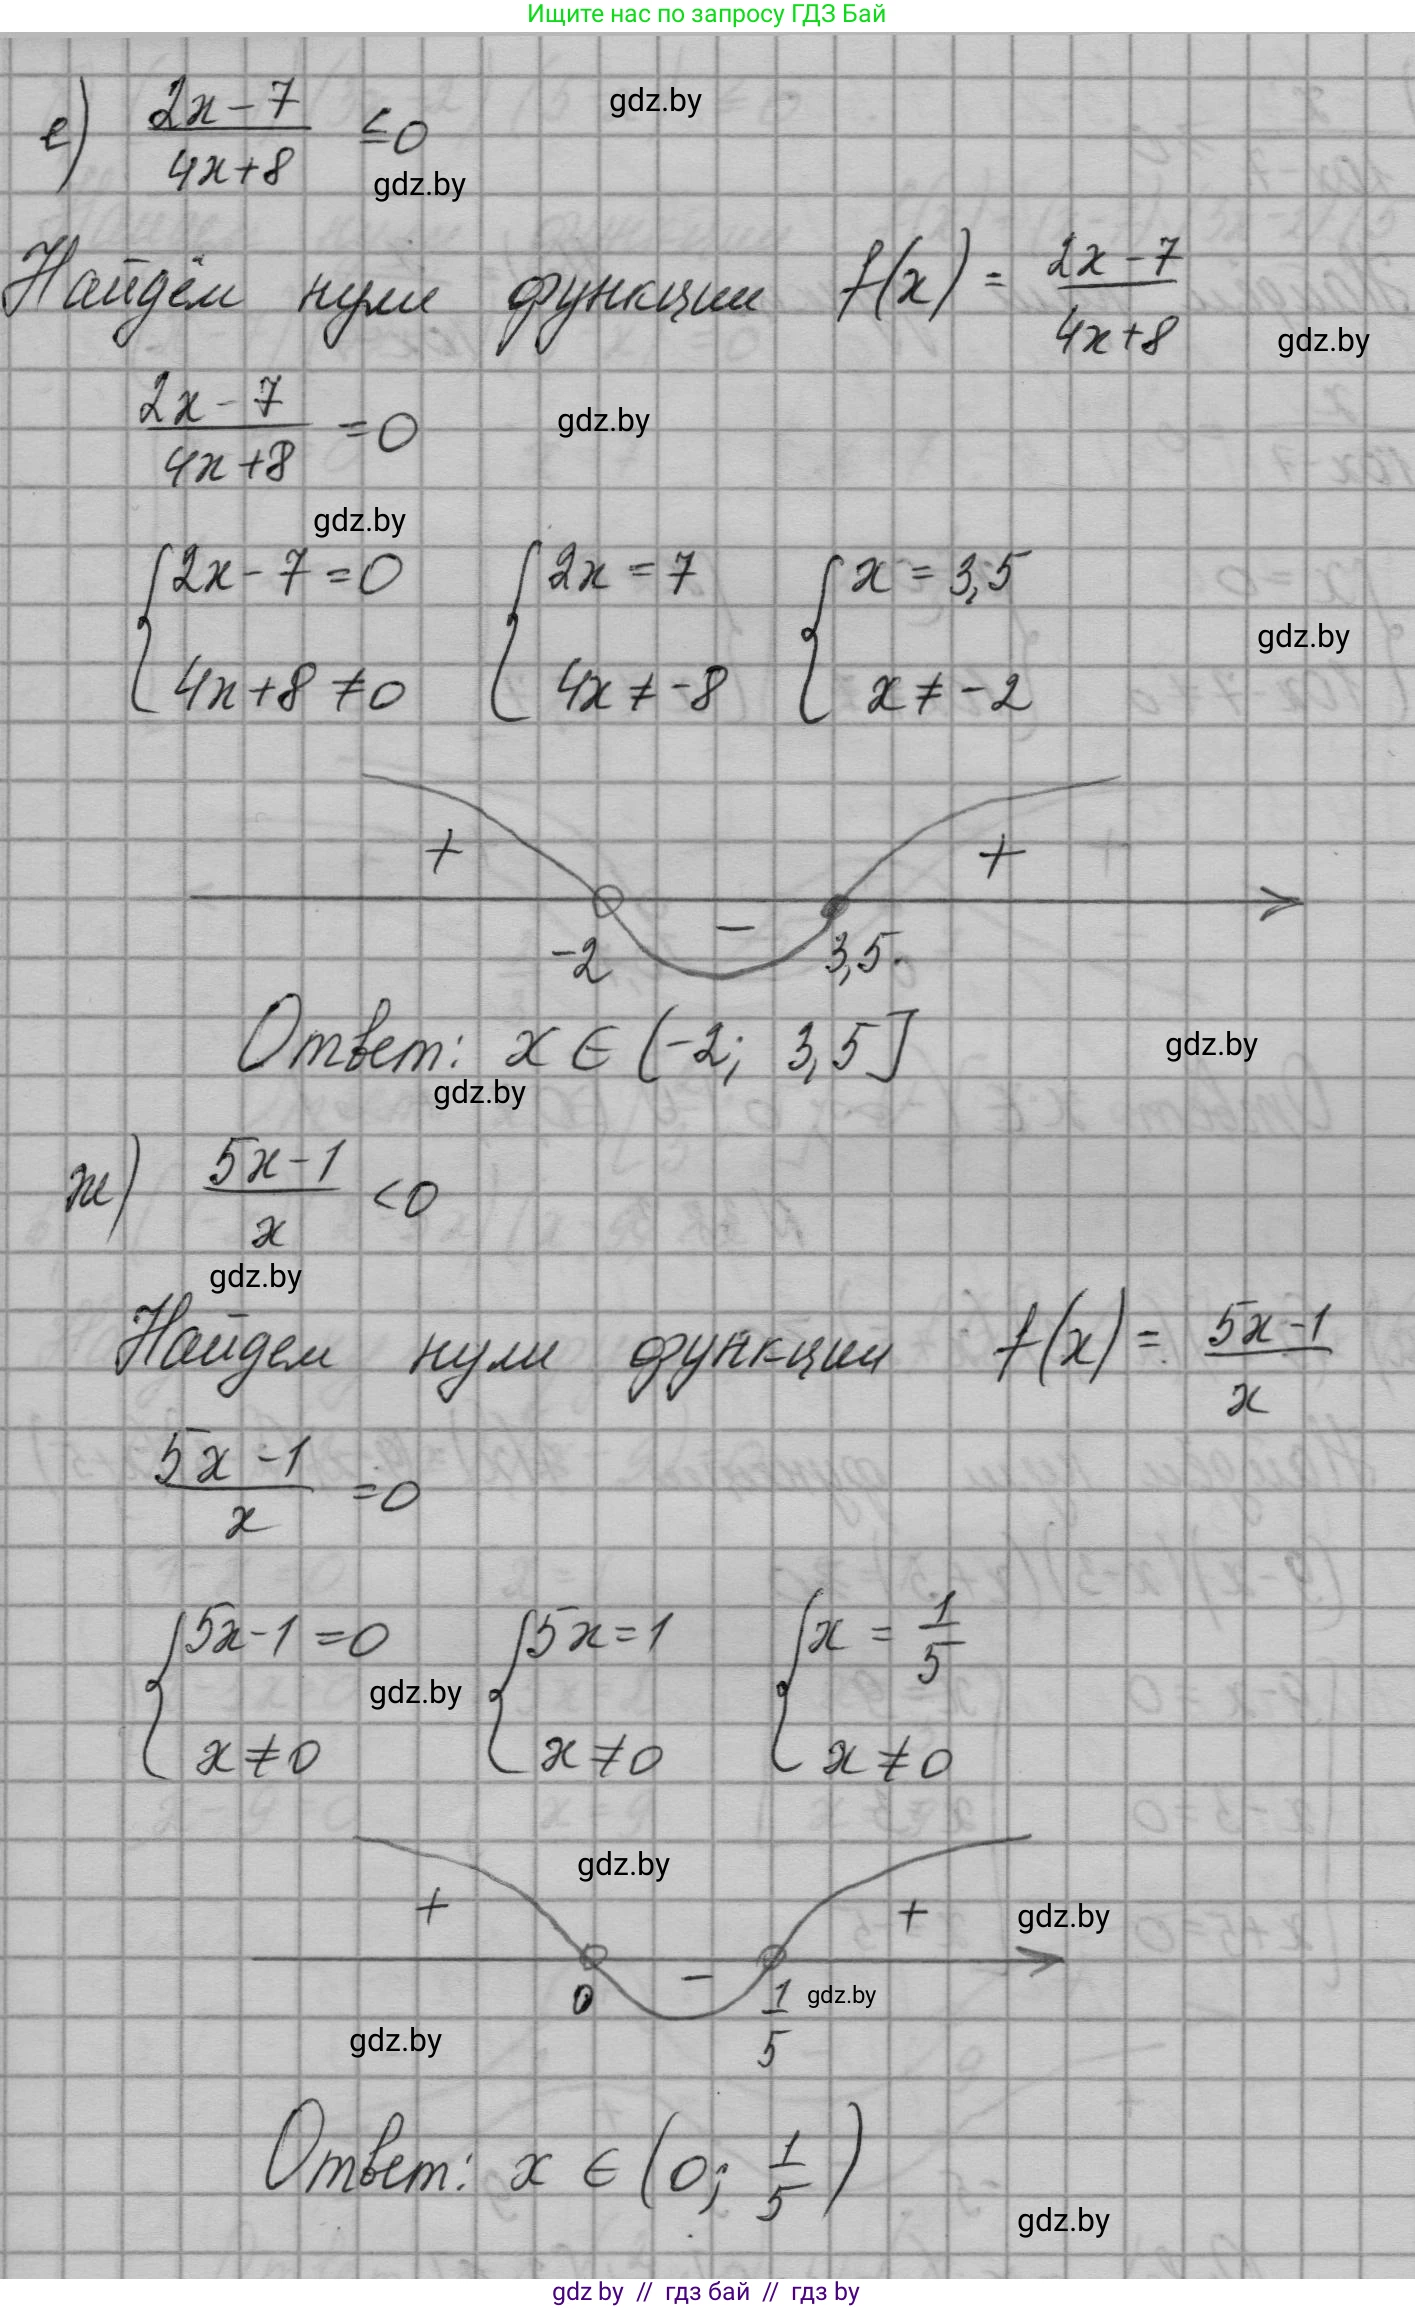 Ищите нас по запросу ГДЗ Бай
е) (2x-7)/(4x+8) ≤0
gdz.by
gdz.by
Найдём нули функции f(x) = (2x-7)/(4x+8)
gdz.by
(2x-7)/(4x+8) =0
gdz.by
gdz.by
{2x-7=0 {2x=7 {x=3,5
gdz.by
4x+8≠0 4x≠-8 x≠-2
+ - +
-2 3,5
Ответ: x∈(-2; 3,5]
gdz.by
gdz.by
ж) (5x-1)/x <0
gdz.by
Найдем нули функции f(x)= (5x-1)/x
(5x-1)/x =0
{5x-1=0 {5x=1 {x=1/5
gdz.by
x≠0 x≠0 x≠0
gdz.by
+ - +
gdz.by
0 1/5
gdz.by
gdz.by
Ответ: x∈(0; 1/5)
gdz.by
gdz by // гдз бай // гдз by